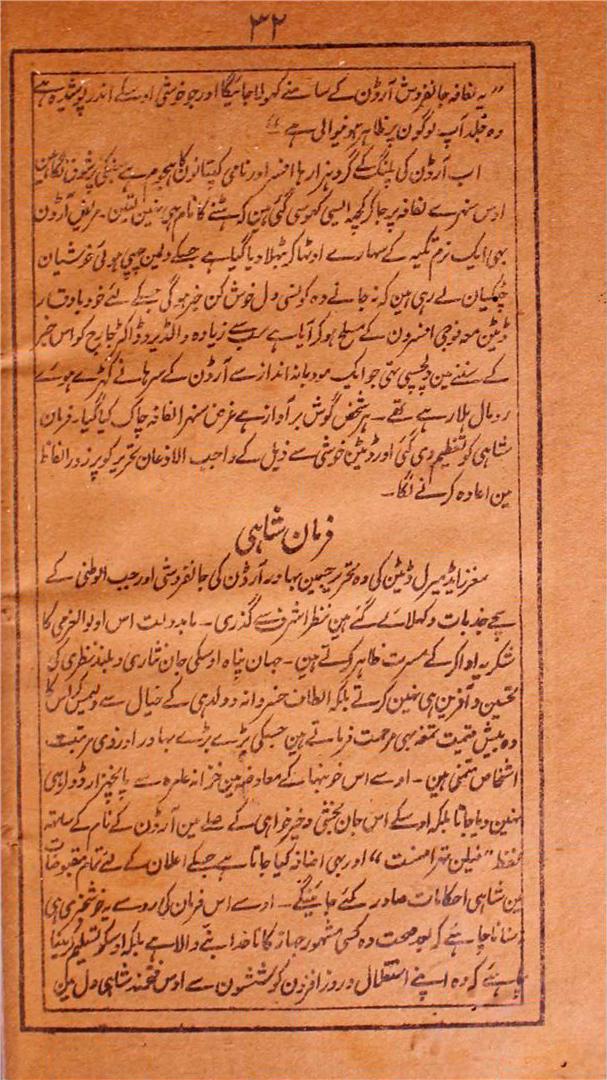 ۳۲
”یہ لفافہ جانفروش آرڈن کے سامنے کھولا جائیگا اور جو خوشی اوسکے اندر پوشیدہ ہے
وہ جلد آپ لوگون پر ظاہر ہو نیوالی ہے“
اب آرڈن کی پلنگ کے گرد ہزارہا افسر اور نامی کپتانون کا ہجوم ہے جنکی پرشوق نگاہین
اوس سنہرے لفافہ پر جا کر کچھ ایسی کھوسی گئی ہین کہ ہٹنے کا نام ہی نہین لیتین۔ مریض آرڈن
بھی ایک نرم تکیہ کے سہارے اوٹھا کر بٹھلا دیا گیا ہے جسکے دلمین چھپی ہوئی خوشیان
چٹکیان لے رہی ہین کہ نہ جانے وہ کونسی دل خوش کن خبر ہوگی جسکے لئے خود باوقار
ڈینٹن معہ فوجی افسرون کے مسلح ہو کر آیا ہے سب سے زیادہ والنٹیر و ڈاکٹر جارج کو اس خبر
کے سننے مین دلچسپی تھی جو ایک مودبانہ انداز سے آرڈن کے سرہانے کھڑے ہوئے
رومال ہلا رہے تھے۔ ہر شخص گوش بر آواز ہے غرض سنہرا لفافہ چاک کیا گیا۔ فرمان
شاہی کو تعظیم دی گئی اور ڈینٹن خوشی سے ذیل کے واجب الاذعان تحریر کو پرزور الفاظ
مین اعادہ کرنے لگا۔
فرمان شاہی
معزز ایڈمیرل ڈینٹن کی وہ تحریر جسمین بہادر آرڈن کی جانفروشی اور حب الوطنی کے
سچے جذبات دکھلائے گئے ہین نظر اشرف سے گذری۔ مابدولت اس اولوالعزمی کا
شکریہ ادا کرکے مسرت ظاہر کرتے ہین۔ جہان پناہ اوسکی جان نثاری و بلند نظری کی
تحسین و آفرین ہی نہین کرتے بلکہ الطاف خسروانہ و ولدہی کے خیال سے
وہ بیش قیمت تمغہ بھی مرحمت فرماتے ہین جسکی بڑے بڑے بہادر اور ذی مرتبت
اشخاص متمنی ہین۔ اوسے اس خونبہا کے معاوضہ مین خزانہ عامرہ سے پانچہزار ڈالر ہی
نہین دیا جاتا بلکہ اوسکے اس جان بخشی و خیر خواہی کے صلے مین آرڈن کے نام کے ساتھ
لفظ اور بھی اضافہ کیا جاتا ہے جسکے اعلان کے لئے تمام مقبوضات
مین شاہی احکامات صادر کئے جائینگے۔ اوسے اس فرمان کی رو سے یہ خوشخبری بھی
سنانا چاہئے کہ بعد صحت وہ کسی مشہور جہاز کا ناخدا بننے والا ہے بلکہ اوسکو تسلیم کرلینا
چاہئے کہ وہ اپنے استقلال و روز افزون کوششون سے اوس فتحمند شاہی دل مین